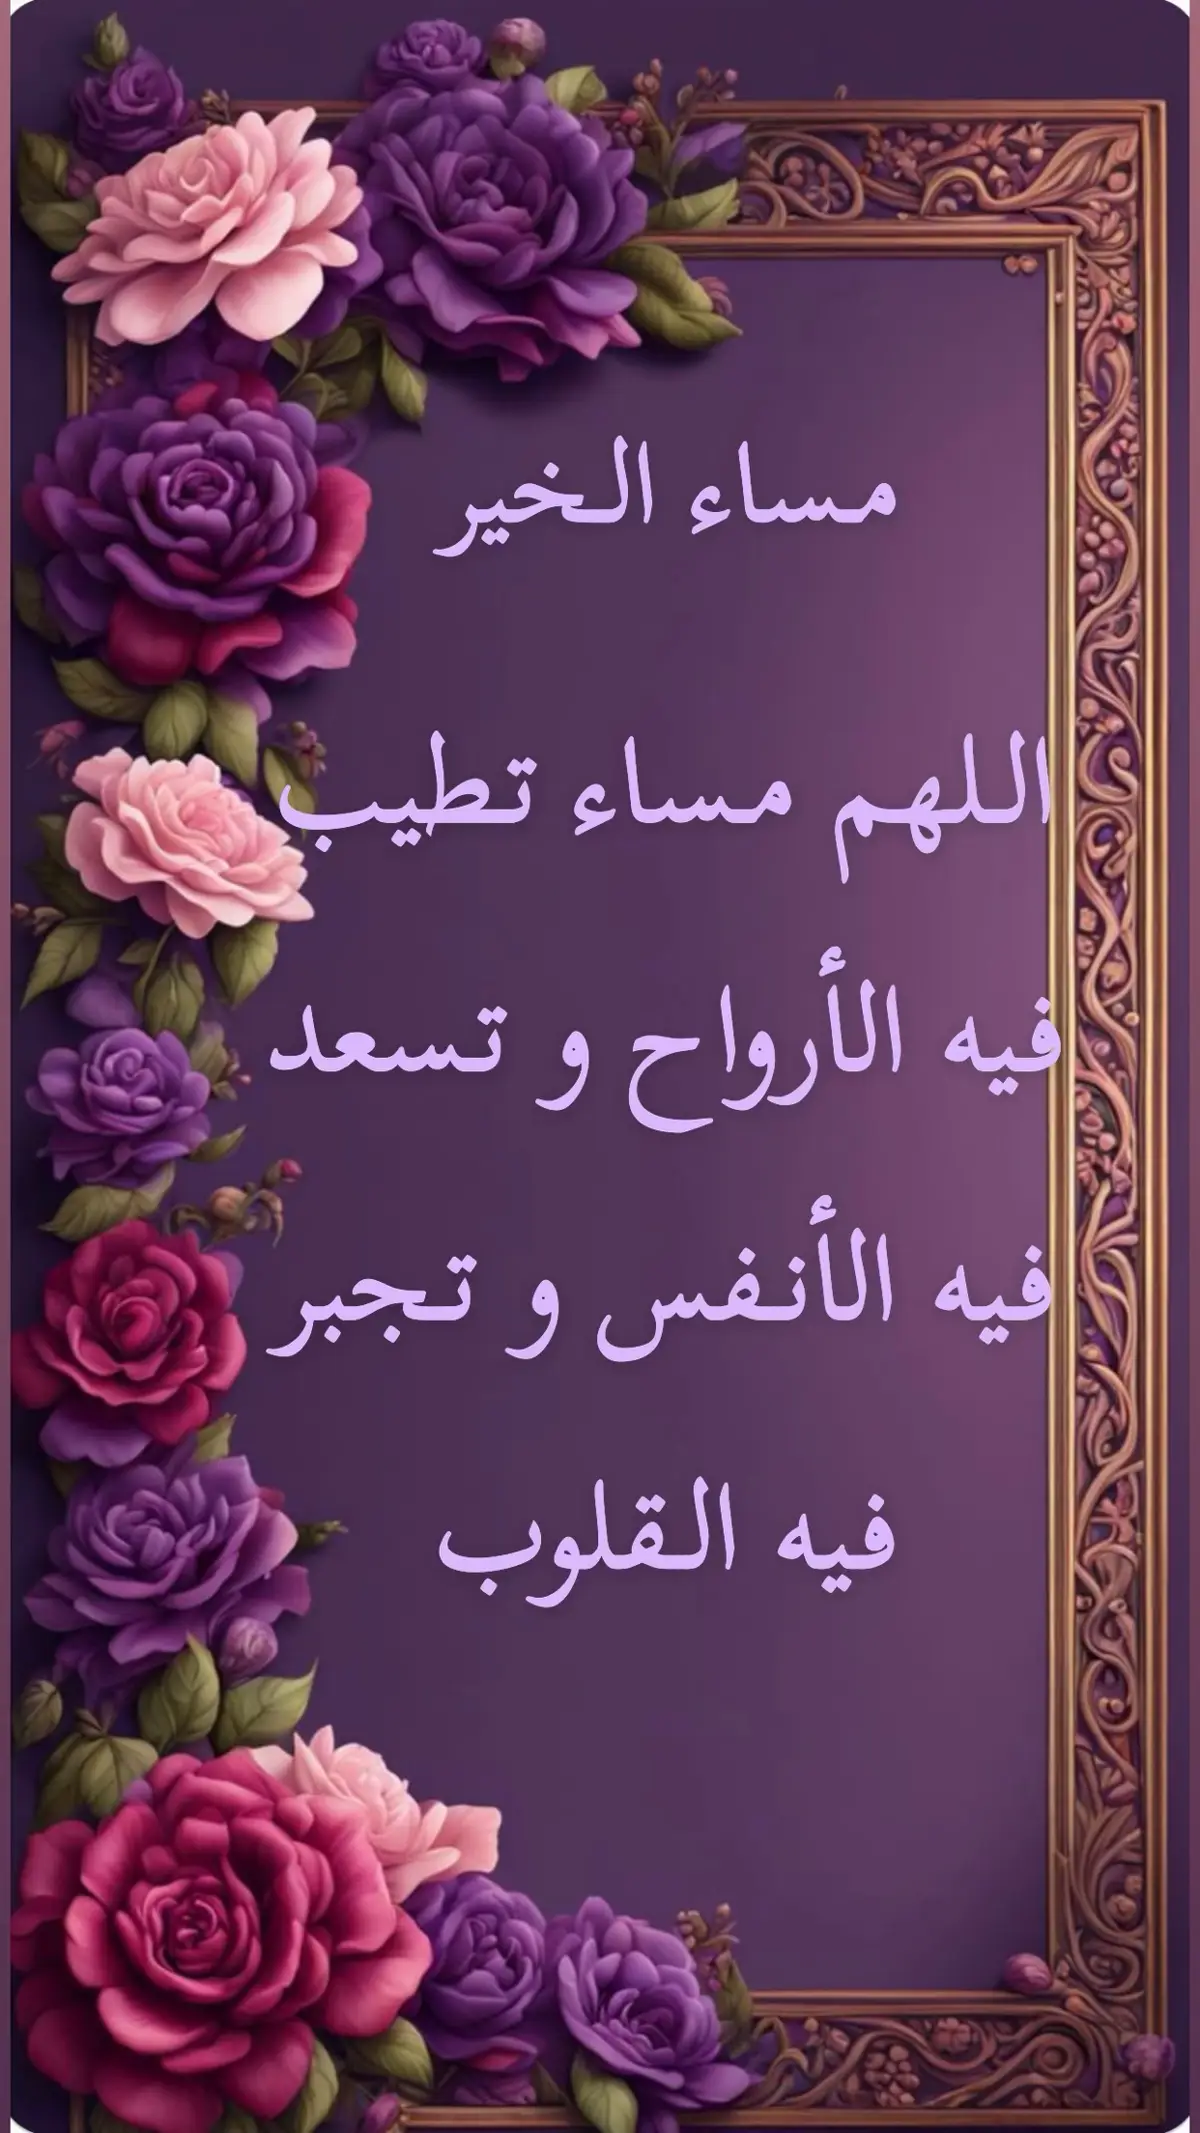 مساء الخير
اللهم مساء تطيب
فيه الأرواح و تسعد
فيه الأنفس و تجبر
فيه القلوب